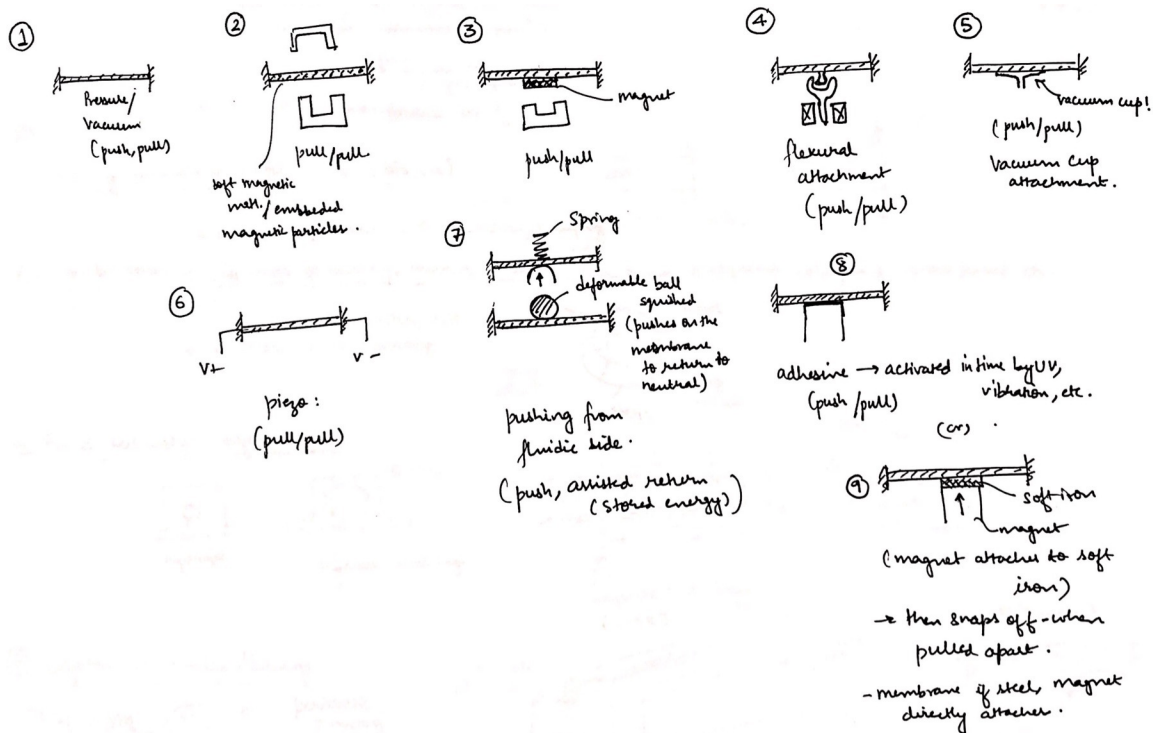 ①
Pressure/
vacuum
(push, pull)
②
pull/pull
soft magnetic
matl. / embedded
magnetic particles.
③
magnet
push/pull
④
flexural
attachment
(push/pull)
⑤
vacuum cup!
(push/pull)
vacuum cup
attachment.
⑥
V+
V-
piezo:
(pull/pull)
⑦
Spring
deformable ball
squished
(pushes on the
membrane
to return to
neutral)
pushing from
fluidic side.
(push, assisted return
(stored energy))
⑧
adhesive → activated in time by UV,
vibration, etc.
(push/pull)
(or)
⑨
soft iron
magnet
(magnet attaches to soft
iron)
→ then snaps off - when
pulled apart.
- membrane if steel, magnet
directly attaches.